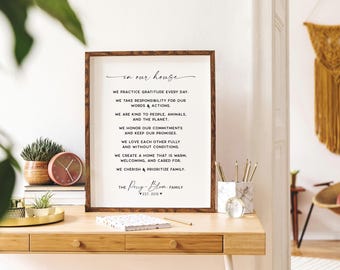 in our house
WE PRACTICE GRATITUDE EVERY DAY.
WE TAKE RESPONSIBILITY FOR OUR
WORDS & ACTIONS.
WE ARE KIND TO PEOPLE, ANIMALS,
AND THE PLANET.
WE HONOR OUR COMMITMENTS
AND KEEP OUR PROMISES.
WE LOVE EACH OTHER FULLY
AND WITHOUT CONDITIONS.
WE CREATE A HOME THAT IS WARM,
WELCOMING, AND CARED FOR.
WE CHERISH & PRIORITIZE FAMILY.
THE Perry-Bloom FAMILY
EST. 2019